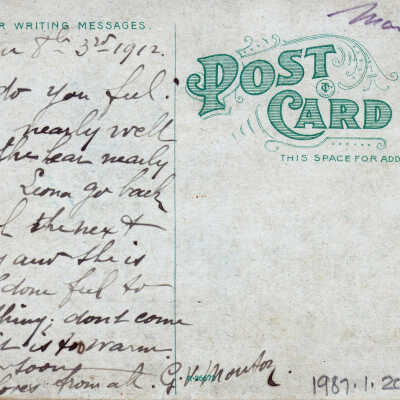 R WRITING MESSAGES.
8th 3rd 1912.
do you feel.
nearly well
the hear nearly
Leona go back
the next
and she is
done feel to
thing. dont come
it is to warm.
soon
from all. G. W. Mouton
POST
CARD
THIS SPACE FOR ADD
1987.1.20